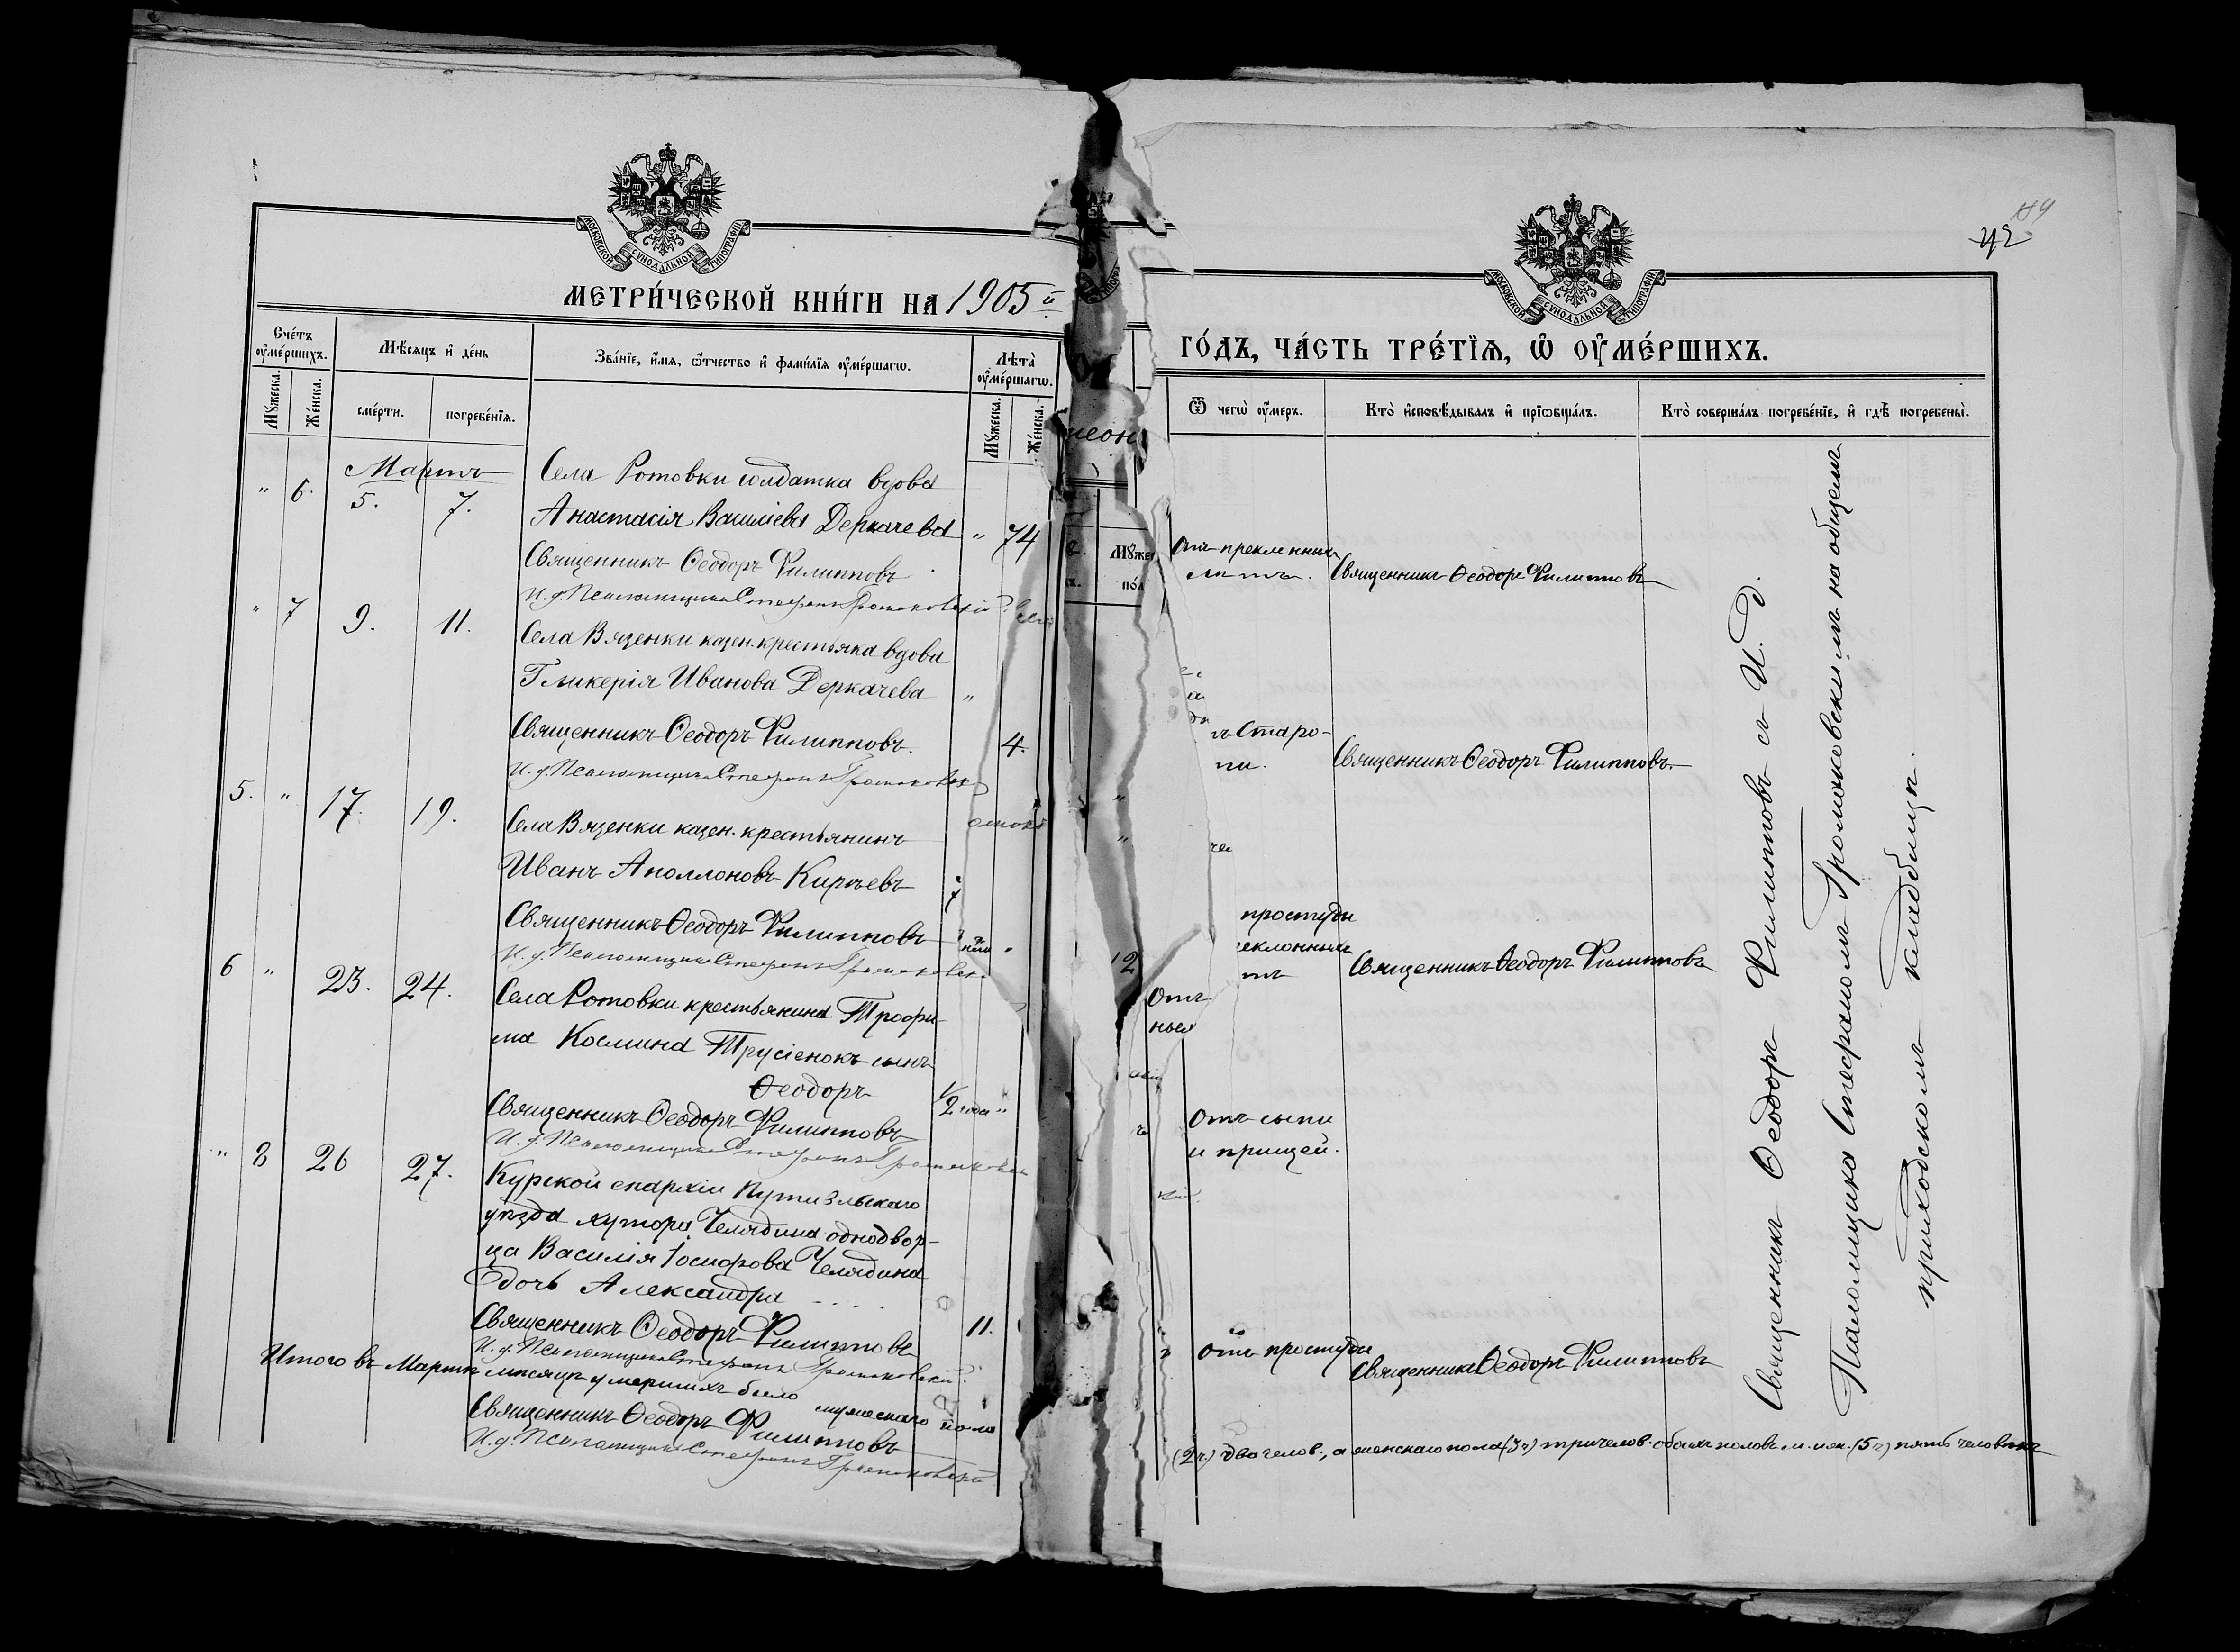 МОСКОВСКОЙ СѴНОДАЛЬНОЙ ТИПОГРАФІИ
МЕТРИ́ЧЕСКОЙ КНИ́ГИ НА 1905й
Сче́тъ оу҆ме́ршихъ.
Мꙋ́жеска.
Же́нска.
Мѣ́сяцъ и҆ де́нь
сме́рти.
погребе́нїѧ.
Зва́нїе, и҆́мѧ, ѻ҆́тчество и҆ фами́лїѧ оу҆ме́ршагѡ.
Лѣ́та оу҆ме́ршагѡ.
Мꙋ́жеска.
Же́нска.
Мартъ
" 6. 5. 7. Села Ротовки солдатка вдова
Анастасія Василіева Деркачева " 74
Священникъ Ѳеодоръ Филипповъ
И. д. Псаломщика Стефанъ Громаковскій
" 7 9. 11. Села Вязенки казен. крестьянка вдова
Гликерія Иванова Деркачева "
Священникъ Ѳеодоръ Филипповъ. 4.
И. д. Псаломщика Стефанъ Громаковск
5. " 17. 19. Села Вязенки казен. крестьянинъ
Иванъ Аполлоновъ Кирѣевъ
Священникъ Ѳеодоръ Филипповъ "
И. д. Псаломщика Стефанъ Громаковск
6 " 23. 24. Села Ротовки крестьянина Трофи-
ма Космина Трусіенокъ сынъ
Ѳеодоръ 1/2 года "
Священникъ Ѳеодоръ Филипповъ
И. д. Псаломщика Стефанъ Громаковскій
" 8 26 27. Курской епархіи Путивльскаго
уѣзда хутора Челядина однодвор-
ца Василія Іосифова Челядина
дочь Александра 11.
Священникъ Ѳеодоръ Филипповъ
И. д. Псаломщика Стефанъ Громаковскій
Итого въ Мартѣ мѣсяцѣ умершихъ было мужескаго пола
Священникъ Ѳеодоръ Филипповъ
И. д. Псаломщика Стефанъ Громаковскій
Мꙋже
по́л
12
42
МОСКОВСКОЙ СѴНОДАЛЬНОЙ ТИПОГРАФІИ
ГО́ДЪ, ЧА́СТЬ ТРЕ́ТЇѦ, Ѡ҆ ОУ҆МЕ́РШИХЪ.
Ѿ чегѡ̀ оу҆́меръ.
Кто̀ и҆сповѣ́дывалъ и҆ прїѡбща́лъ.
Кто̀ соверша́лъ погребе́нїе, и҆ гдѣ̀ погребены̀.
Отъ преклонныхъ
лѣтъ. Священникъ Ѳеодоръ Филипповъ
ъ Старо-
ти. Священникъ Ѳеодоръ Филипповъ.
простуды
еклонныхъ
тъ Священникъ Ѳеодоръ Филипповъ
Отъ сыпи
и прищей.
Отъ простуды
Священникъ Ѳеодоръ Филипповъ
Священникъ Ѳеодоръ Филипповъ съ И. д.
Псаломщика Стефаномъ Громаковскимъ на общемъ
приходскомъ кладбищѣ.
(2 ч.) два челов., а женскаго пола (3 ч) три челов. обоихъ половъ м. и ж. (5 ч) пять человѣкъ